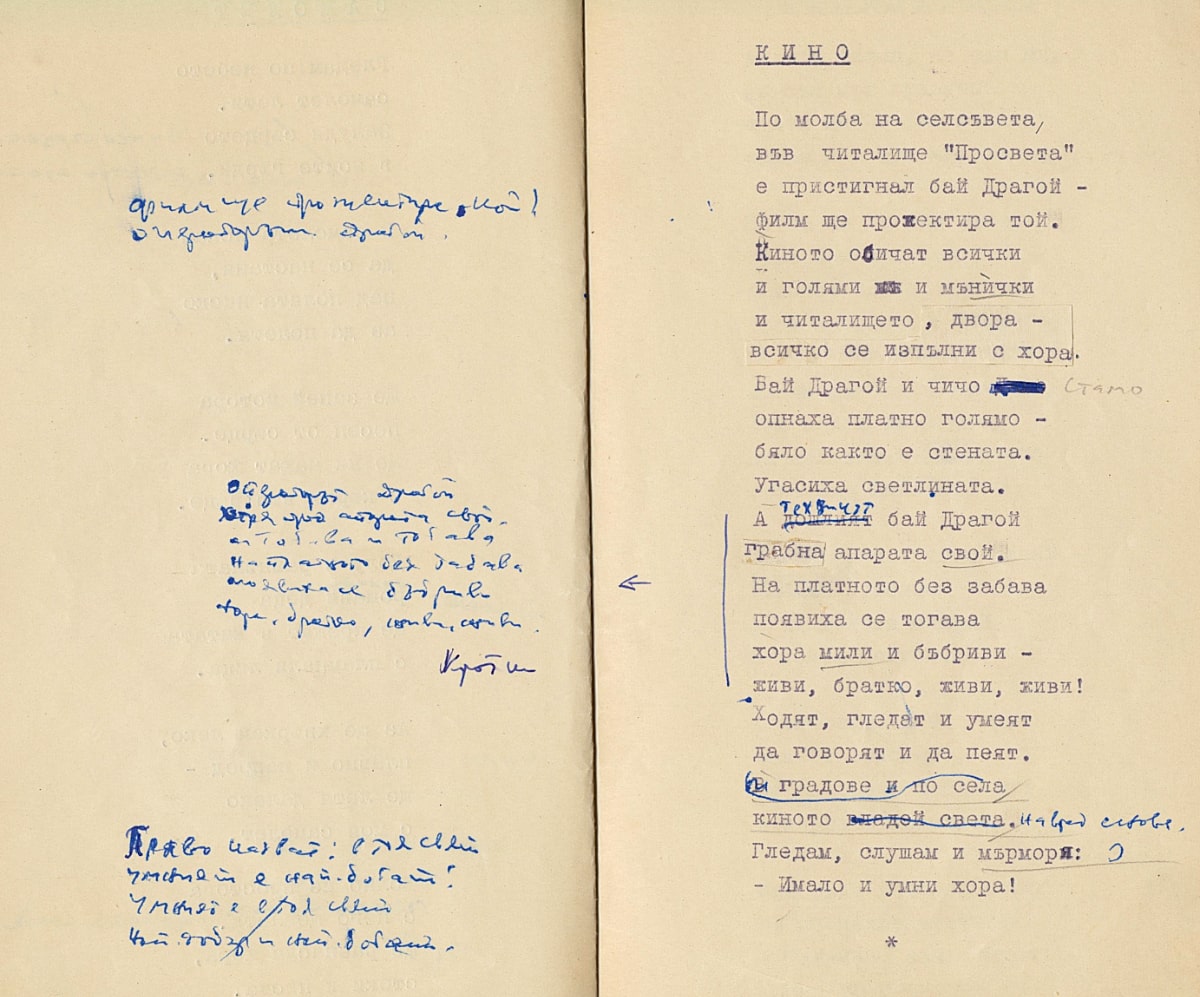 филм ще прожектира, кой?
операторът Драгой.
операторът Драгой
свой.
и тогава
На платното без забава
появиха се бъбриви
хора, братко, живи, живи.
Право казват: в тоя свят
умният е най-богат!
Умният е в тоя свят
най-добър и най-богат.
КИНО
По молба на селсъвета,
във читалище "Просвета"
е пристигнал бай Драгой -
филм ще прожектира той.
Киното обичат всички
и голями и мънички
и читалището, двора -
всичко се изпълни с хора.
Бай Драгой и чичо Стамо
опнаха платно голямо -
бяло както е стената.
Угасиха светлината.
техникът
А дошлият бай Драгой
грабна апарата свой.
На платното без забава
появиха се тогава
хора мили и бъбриви -
живи, братко, живи, живи!
Ходят, гледат и умеят
да говорят и да пеят.
В градове и по села
киното владей света. навред
Гледам, слушам и мърморя:
- Имало и умни хора!
*